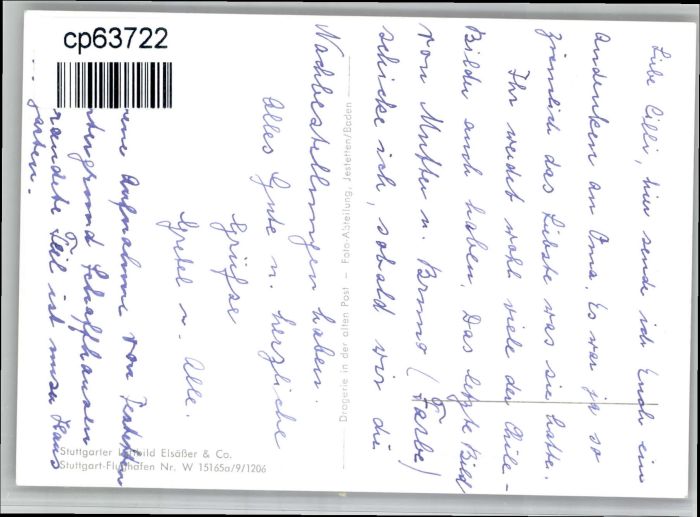 cp63722
Liebe Cilli, hier sende ich Euch ein
Andenken an Oma. Es war ja so
ziemlich das Liebste was sie hatte.
Ihr werdet wohl viele der Chile-
Bilder auch haben. Das letzte Bild
von Mutter u. Bruno (Farbe)
schicke ich, sobald wir die
Nachbestellungen haben.
Alles Gute u. herzliche
Grüße
Gretel u. Alle.
Aufnahme von Jestetten
Schaffhausen
Teil ist unser Haus
garten.
Drogerie in der alten Post – Foto-Abteilung, Jestetten/Baden
Stuttgarter Luftbild Elsäßer & Co.
Stuttgart-Flughafen Nr. W 15165a/9/1206